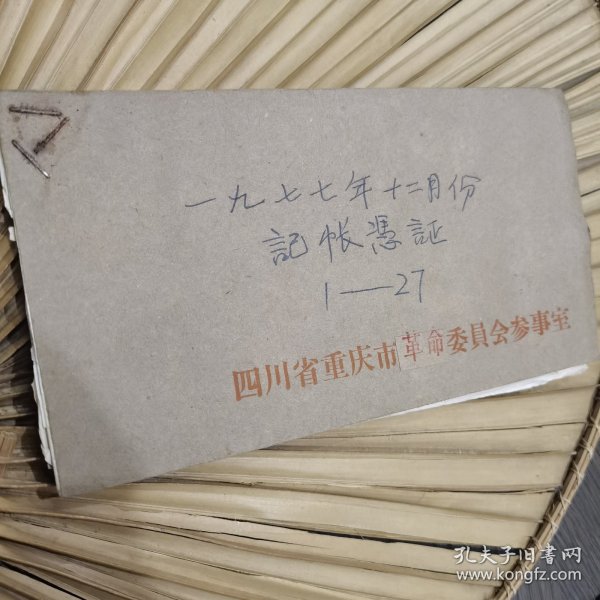 一九七七年十二月份
記帐憑証
1—27
四川省重庆市革命委員会参事室
孔夫子旧書网
www.kongfz.com